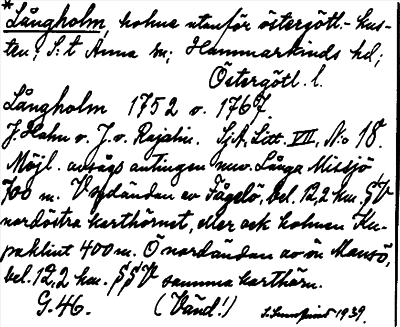 *Långholm, holme utanför östergötl.-kus-
ten; S:t Anna sn; Hammarkinds hd;
Östergötl. l.
Långholm 1752 o. 1767
J. Hahn o. J. v. Rajalin. SjA, Litt. VII, N:o 18.
Möjl. avsågs antingen nuv. Långa Missjö
700 m. V nordändan av Fågelö, bel. 12,2 km. §V
nordöstra karthörnet, eller ock holmen Ku-
paklint 400 m. Ö nordändan av ön Mansö,
bel. 12,2 km. §§V samma karthörn.
G. 46. (Vänd!) 1939.